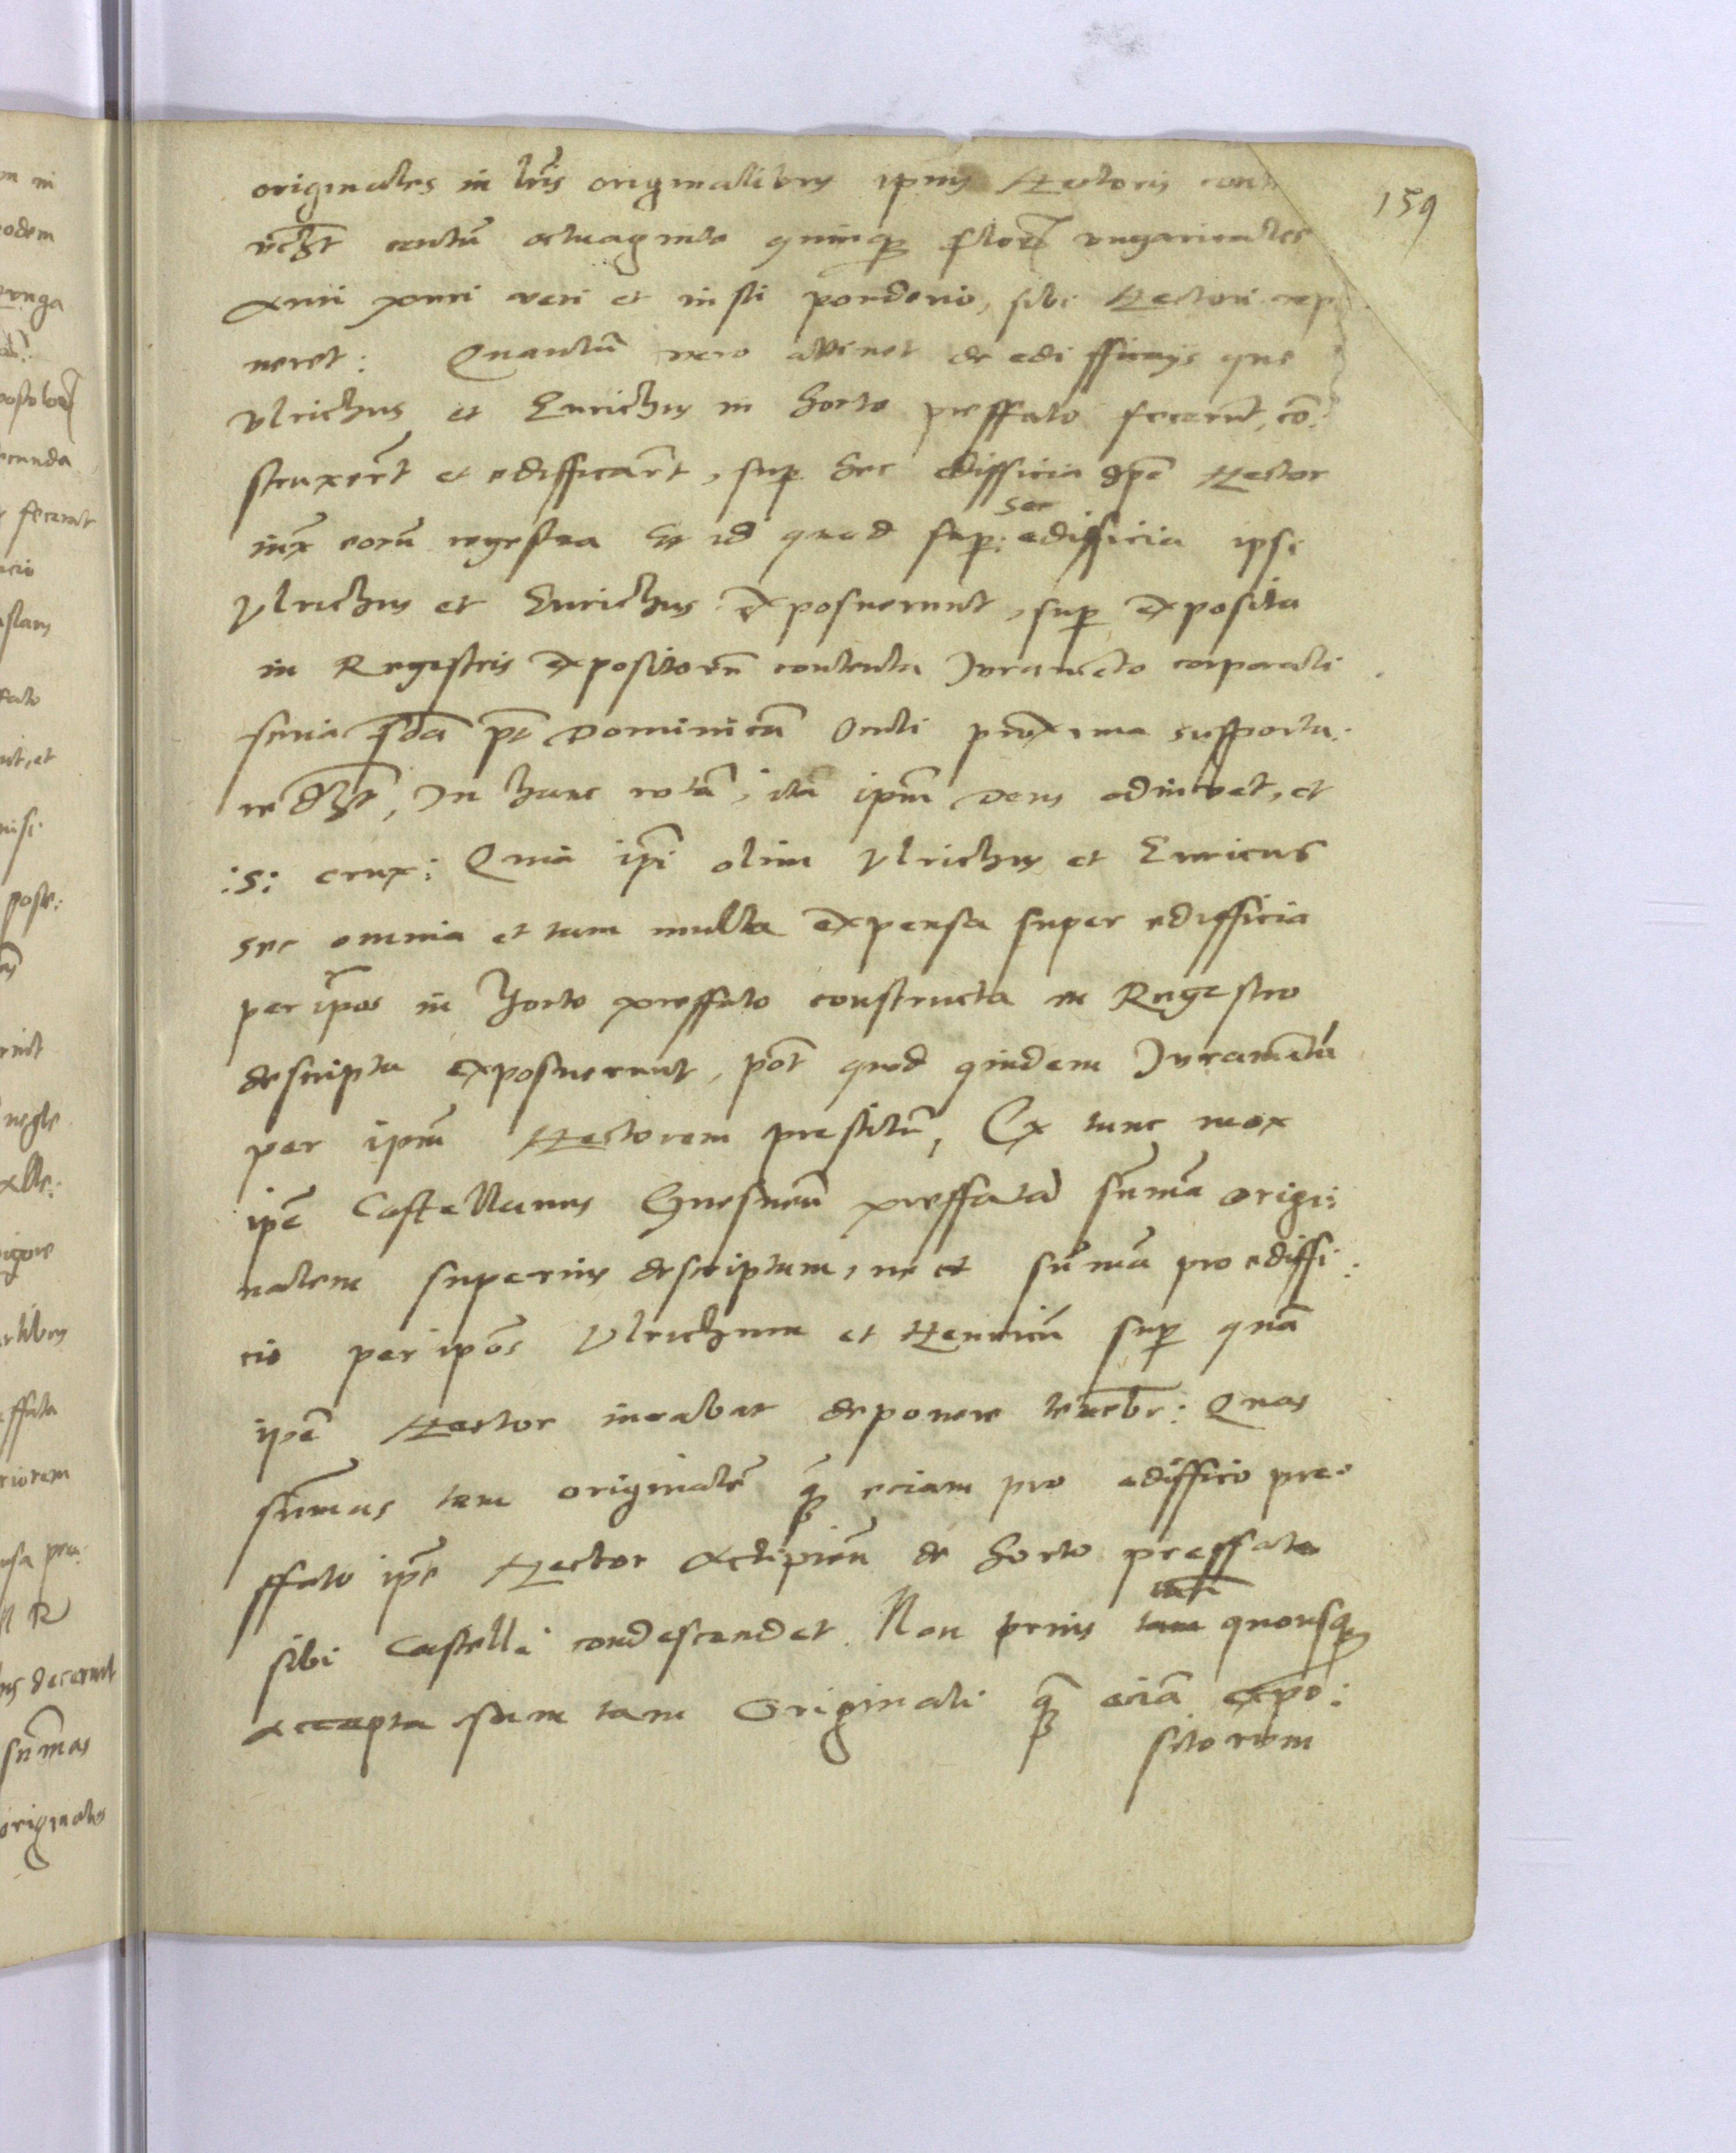 159
originales in lris originalibus ipius Hectoris con
vidzt centu octuaginta quinqz floren ungaricales
auri puri veri et iusti ponderis, sibi Hectori rep
neret: Quantu vero attinet de ediffitiis que
Ulrichus et Enrichus in horto preffato fecerut, co:
struxert et edifficart, sup hec edifficia ipe Hector
iux eoru regestra et id quod sup: hec edifficia ipsi
Ulrichus et Enrichus exposuerunt, sup exposita
in Regestris expositoru contenta Jurameto corporali
feria scda pt Dominica Oculi proxima supporta:
re dzt, In hunc rota, ita ipm Deus adiuvet, et
:s: crux: Quia ipi olim Ulrichus et Enricus
hec omnia et tam multa expensa super edifficia
per ipos in horto preffato constructa in Regestro
descripta exposuerunt, pot quod quidem Juramentu
per ipm Hectorem prestitu, Ex tunc mox
ipe Castellanus Gnesnen preffatam suma origi:
nalem superius descriptam, nec et suma pro ediffi:
cio per ipos Ulrichum et Henricu sup qua
ipe Hector iurabat deponere tenebr: Quas
sumas tam originale qz eciam pro ediffico pre:
ffato ipe Hector accipien de horto preffato
sibi Castella condescendet. Non prius tam quousqz
accepta sum tam Originali qz eciam expo:
sitorum